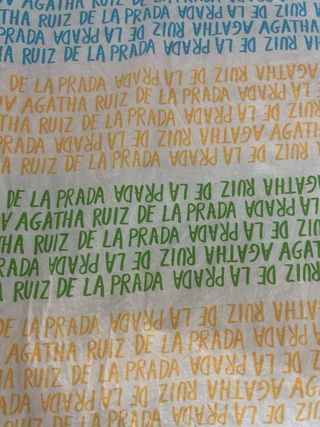 AGATHA RUIZ DE LA PRADA
RUIZ DE LA PRADA AGATHA
DE LA PRADA AGATHA RUIZ
DE LA PRADA PRADA RUIZ DE LA AGATHA
AGATHA RUIZ DE LA PRADA
THA RUIZ DE LA PRADA AGATHA
RUIZ DE LA PRADA AGATHA
AGATHA RUIZ DE LA PRADA
DE LA PRADA RUIZ DE LA PRADA AGATHA
A AGATHA RUIZ DE LA PRADA
HA RUIZ DE LA PRADA AGATHA AGATHA
RUIZ DE LA PRADA
A RUIZ DE LA PRADA
DE LA PRADA RUIZ DE LA PRADA AGATHA
AGATHA RUIZ DE LA PRADA
THA RUIZ DE LA PRADA AGATHA AGA
RUIZ DE LA PRADA
AGATHA RUIZ DE LA PRADA